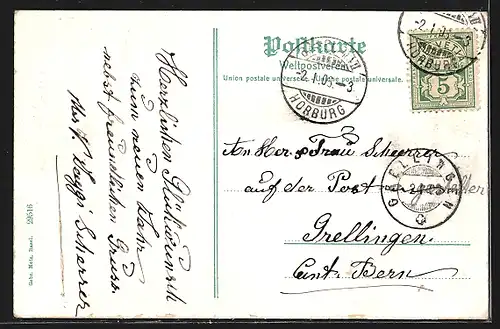 Postkarte
Weltpostverein
Union postale universelle. Unione postale universale.
HORBURG
-2.I.05.-3
HORBURG
5
An Her & Frau Scherrer
auf der Post
Grellingen
Cant. Bern
GRELLINGEN
Herzlichen Glückwunsch
zum neuen Jahr
nebst freundlichen Gruss.
Scherrer
Gebr. Metz, Basel.
29516